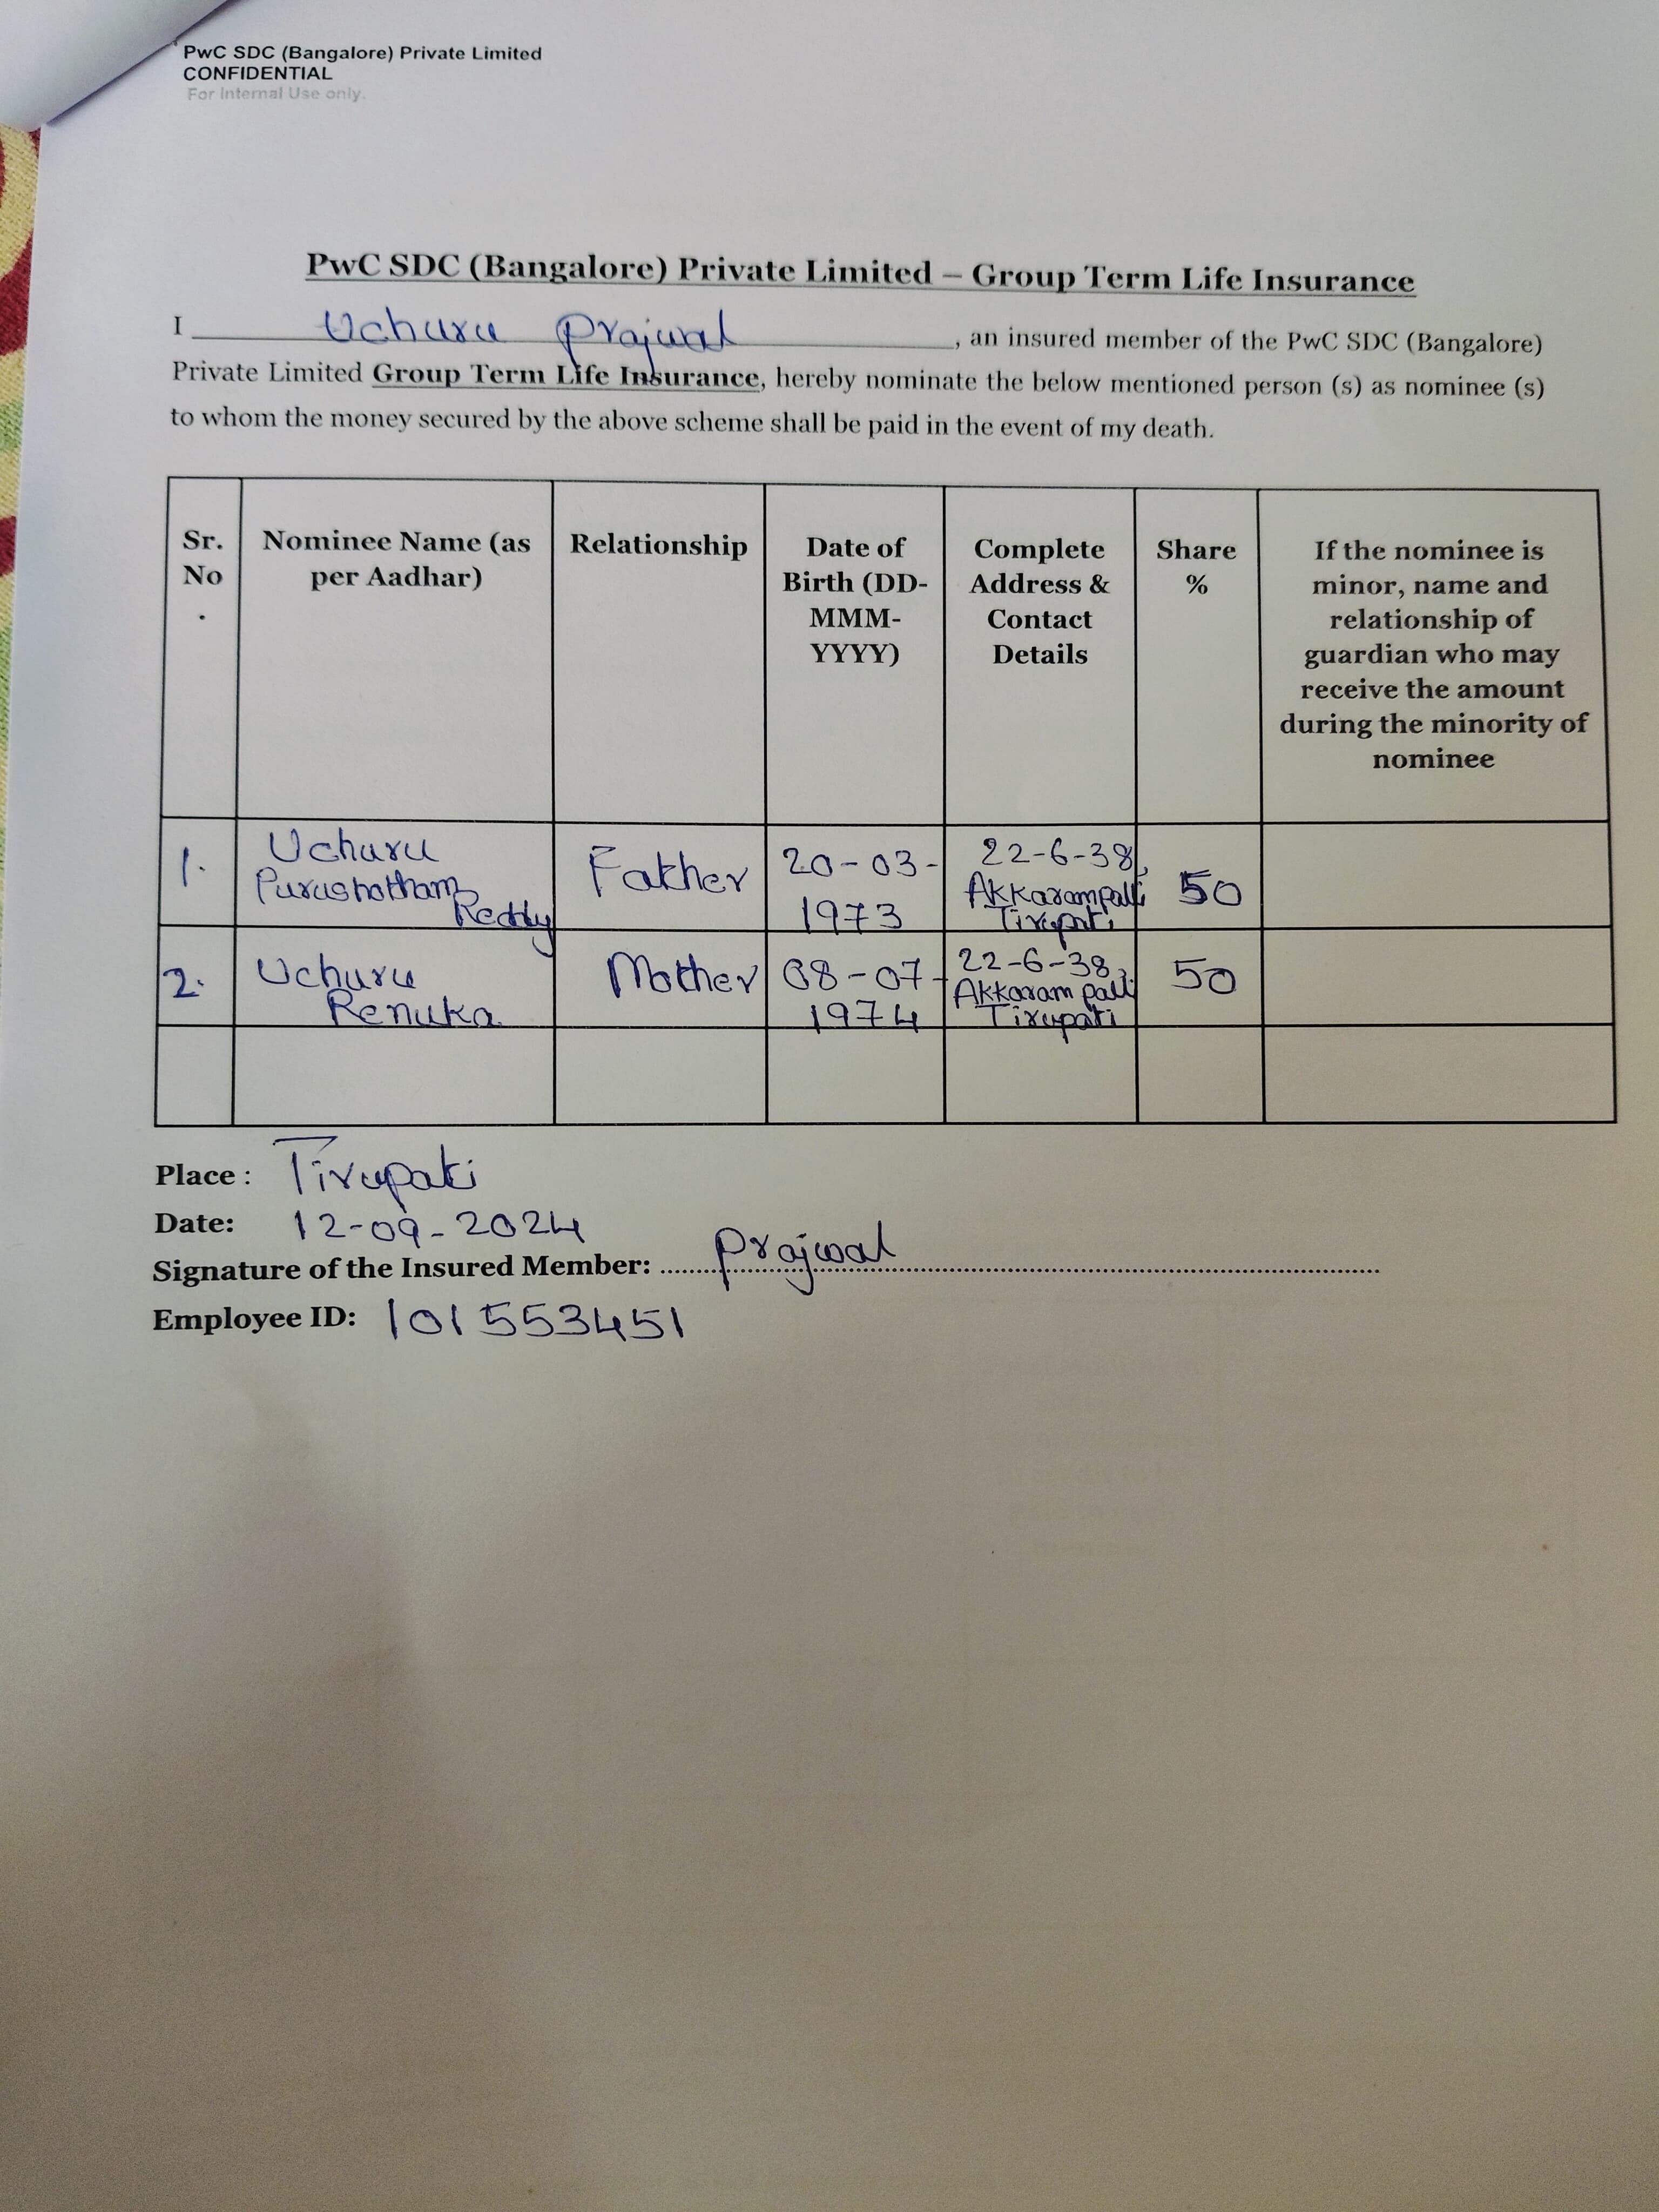 PwC SDC (Bangalore) Private Limited
CONFIDENTIAL
For Internal Use only.
PwC SDC (Bangalore) Private Limited – Group Term Life Insurance
I Uchuru Prajwal, an insured member of the PwC SDC (Bangalore)
Private Limited Group Term Life Insurance, hereby nominate the below mentioned person (s) as nominee (s)
to whom the money secured by the above scheme shall be paid in the event of my death.
Sr. No .
Nominee Name (as per Aadhar)
Relationship
Date of Birth (DD-MMM-YYYY)
Complete Address & Contact Details
Share %
If the nominee is minor, name and relationship of guardian who may receive the amount during the minority of nominee
1. Uchuru Purushotham Reddy Father 20-03-1973 22-6-38, Akkarampalli Tirupati 50
2. Uchuru Renuka Mother 08-07-1974 22-6-38, Akkarampalli Tirupati 50
Place : Tirupati
Date: 12-09-2024
Signature of the Insured Member: Prajwal
Employee ID: 1015553451